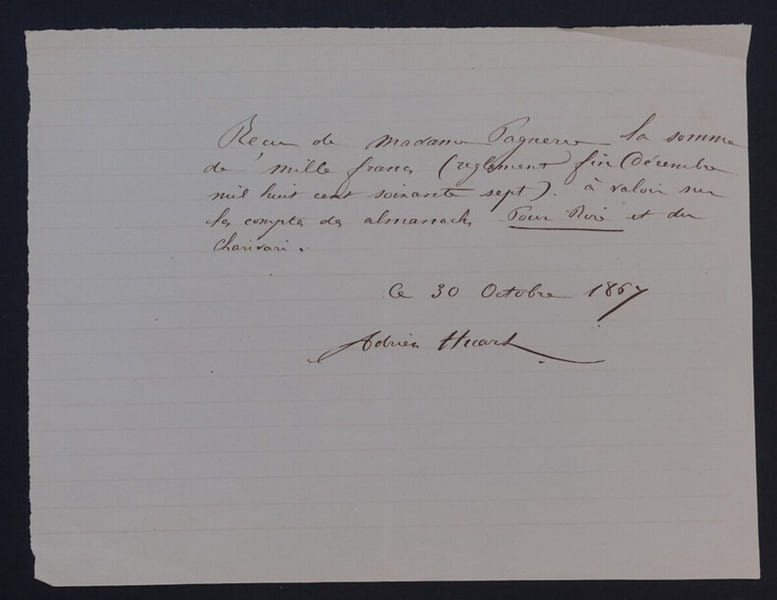 Recu de madame Pagnerre la somme
de mille francs (reglement fin Décembre
mil huit cent soixante sept). à valoir sur
les comptes des almanachs Pour Rire et du
Charivari.
Ce 30 Octobre 1867
Adrien Huart